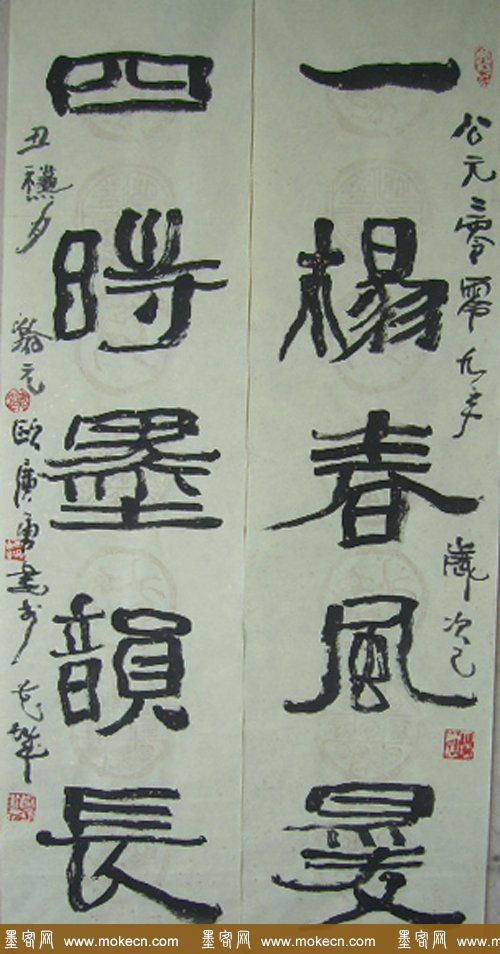 公元二零零九年 歲次己
一楊春風
四時墨韻長
丑 月 翁元歐廣勇書於花城
墨客网 www.mokecn.com 墨客网 www.mokecn.com 墨客网 www.mo